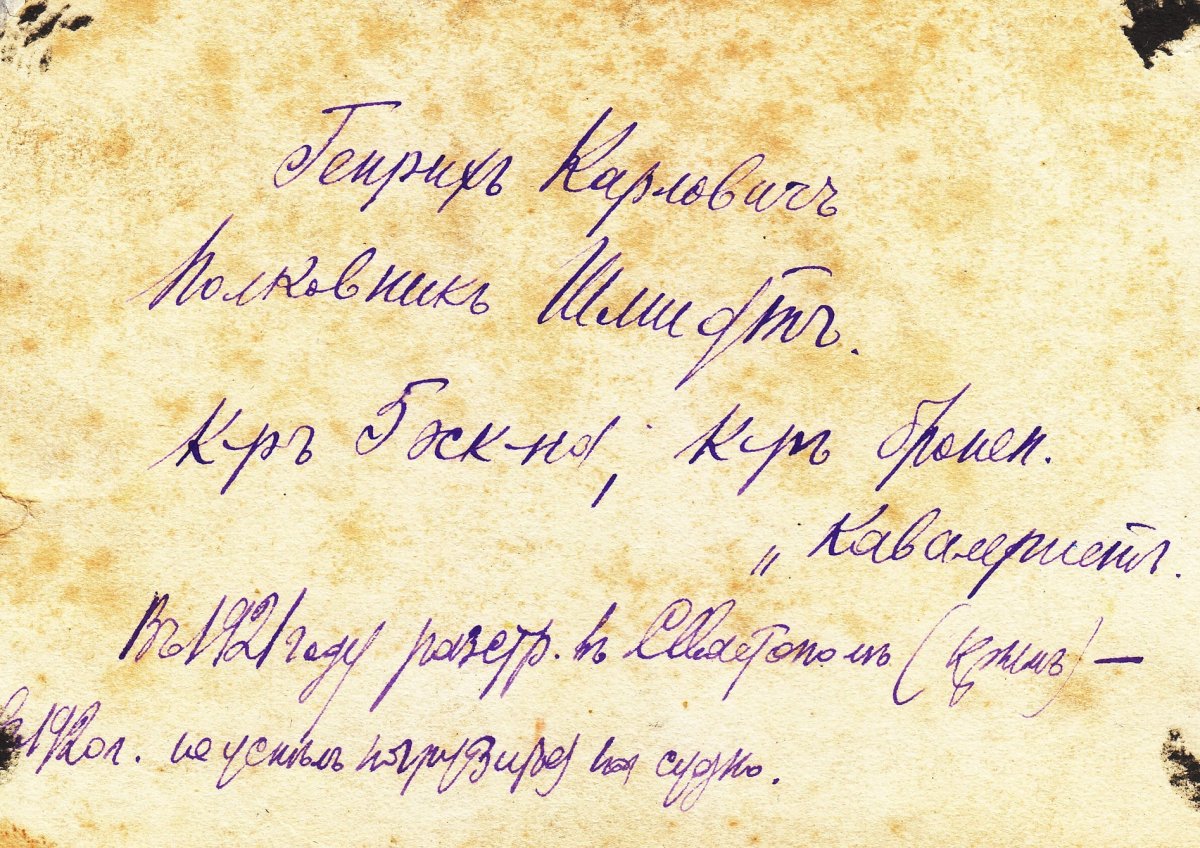 Генрихъ Карловичъ
Полковникъ Шмидтъ.
К-ръ Бэк-на; К-ръ бронеп.
„Кавалеристъ.
Въ 1921 году разстр. въ Севастополѣ (Крымъ) —
въ 1920 г. не успѣлъ погрузиться на судно.